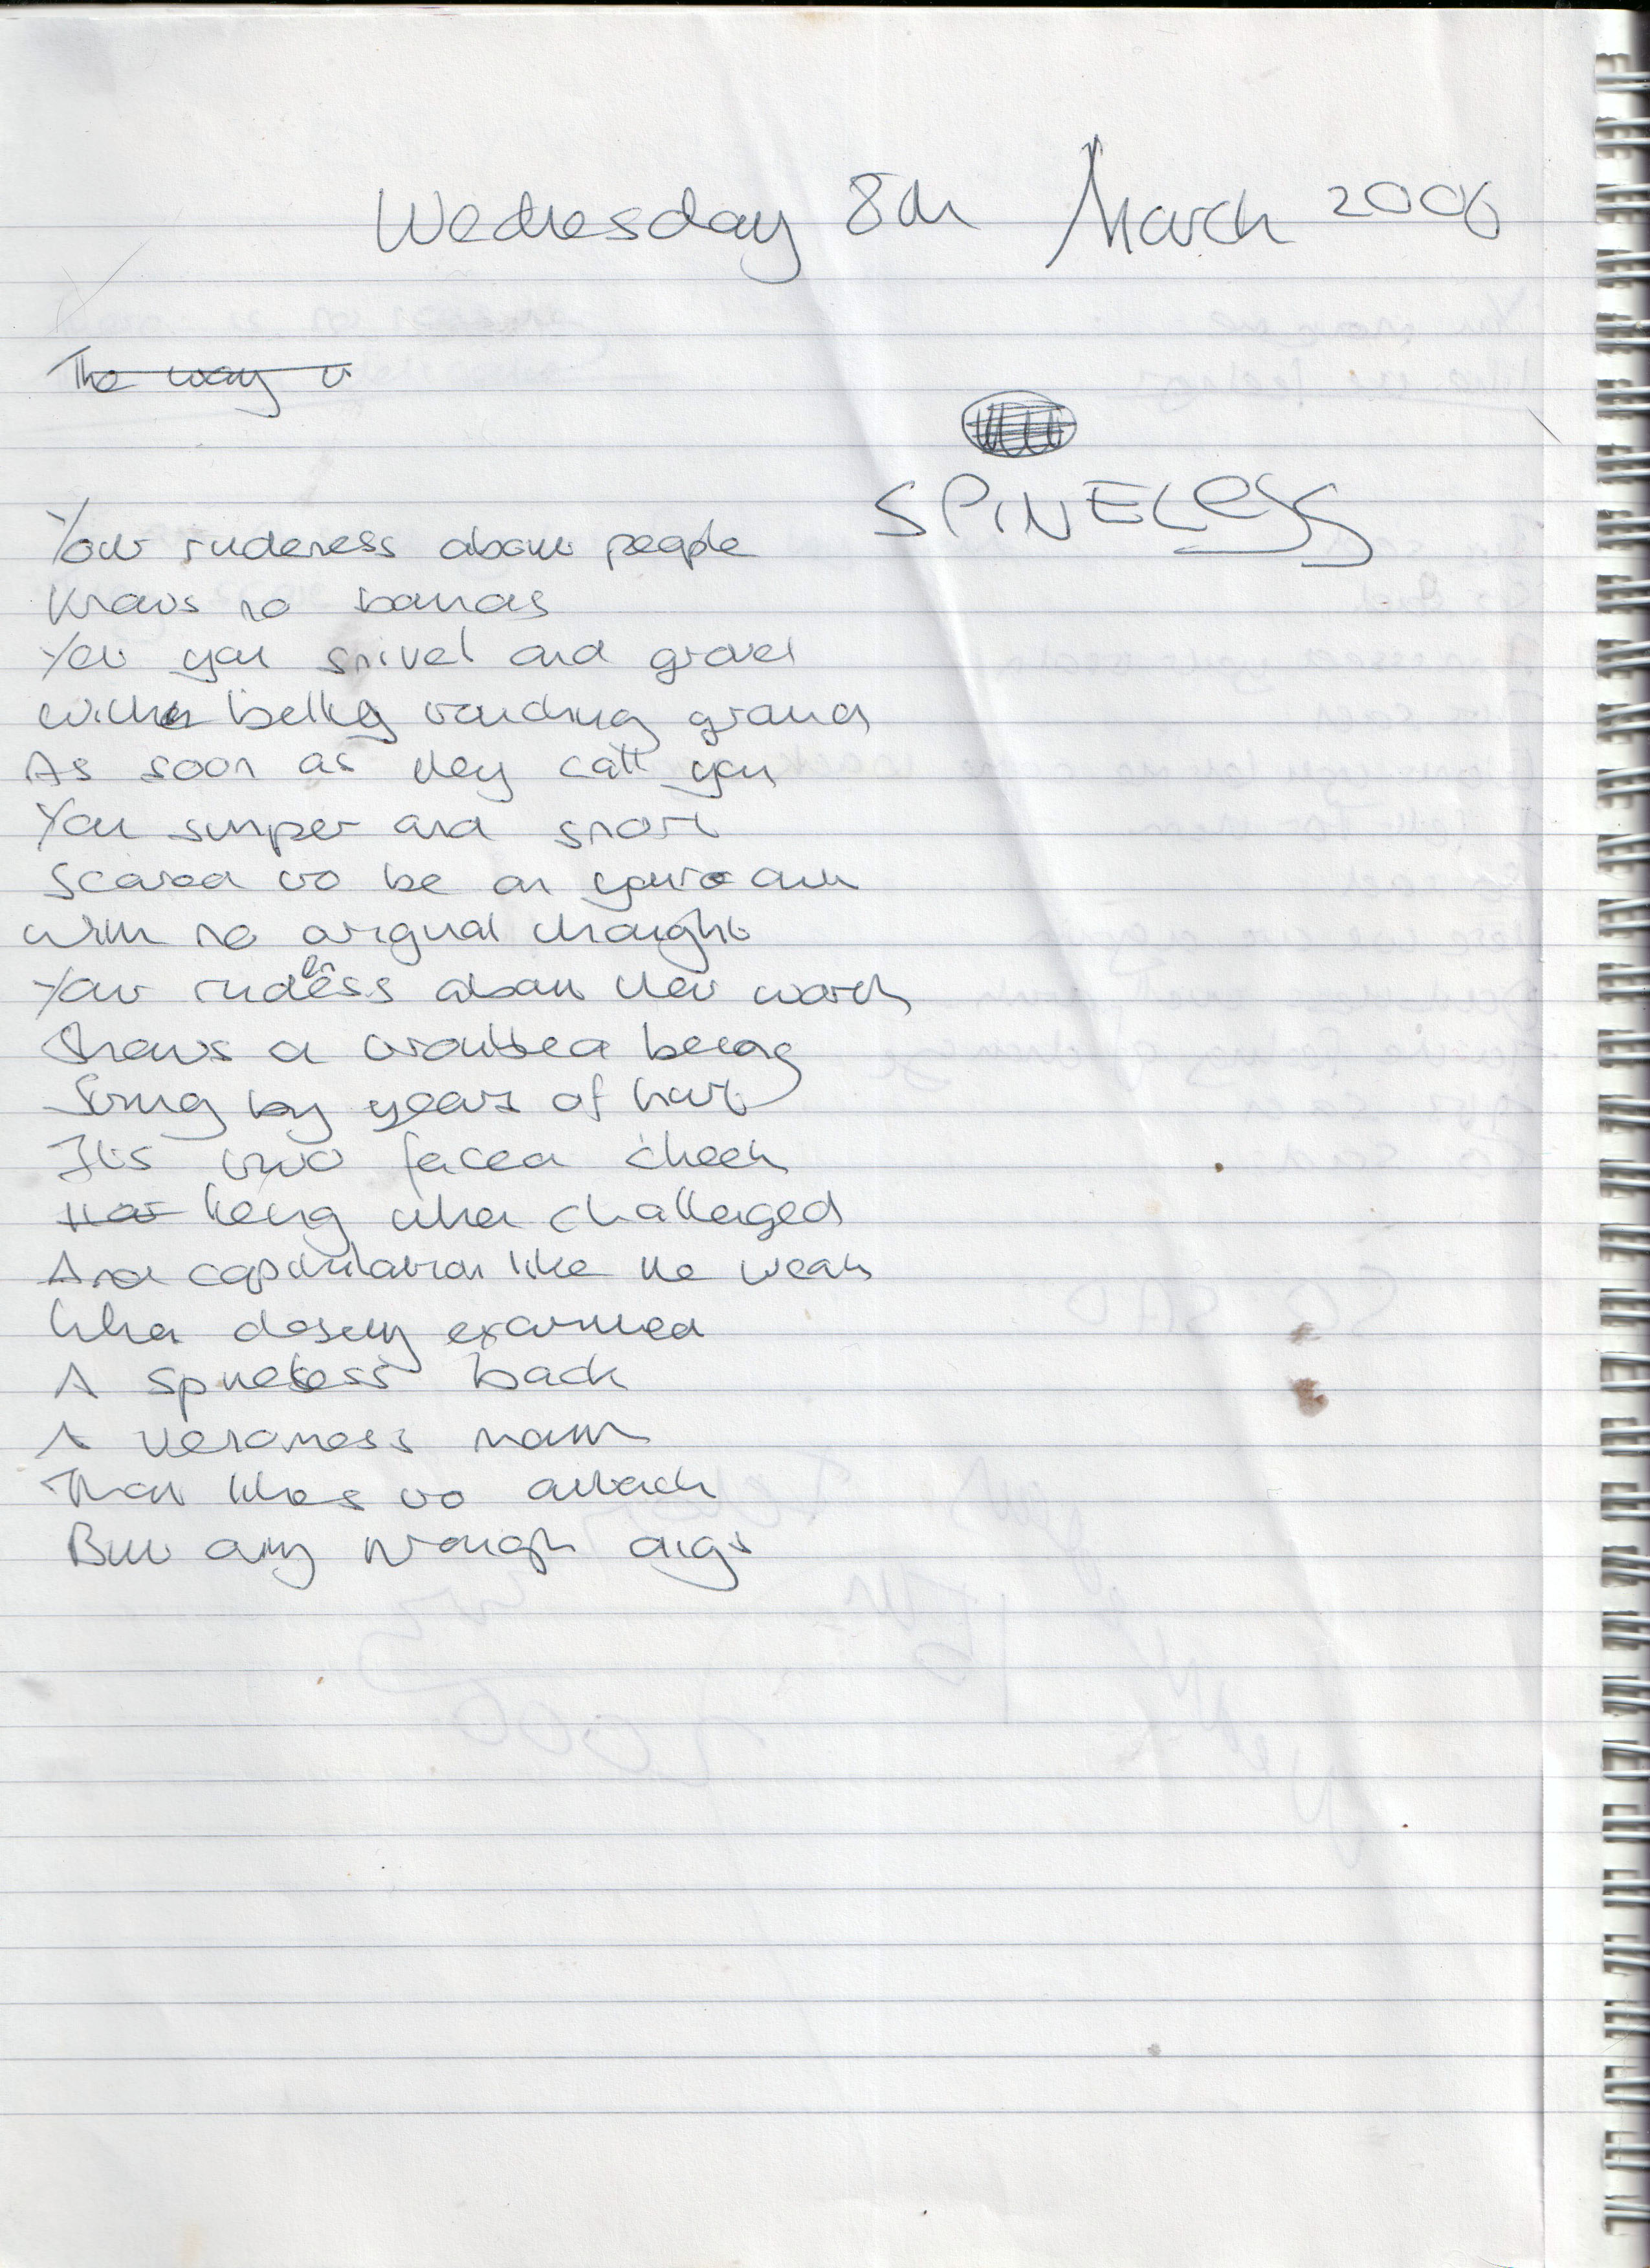 Wednesday 8th March 2006
The way
SPINELESS
Your rudeness about people
Knows no bounds
Yet you snivel and grovel
with belly touching ground
As soon as they call you
You simper and snort
Scared to be on your own
With no original thought
Your rudeness about their worth
Shows a troubled being
Stung by years of hurt
It's two faced cheek
lieing when challenged
And capitulation like the weak
When closely examined
A spineless back
A venomess mouth
That likes to attack
But only through digs